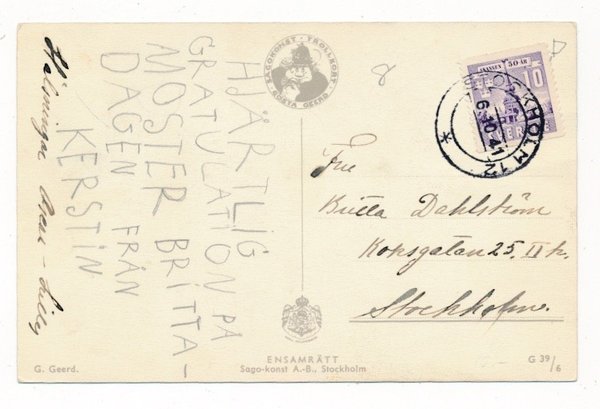 HJÄRTLIG
GRATULATION PÅ
MOSTER BRITTA-
DAGEN FRÅN
KERSTIN
Hälsningar
SAGOKONST - TROLLKORT
GÖSTA GEERD
SKANSEN 50 ÅR
10
SVERIGE
STOCKHOLM 12
6.10.41
Fru
Britta Dahlström
Koksgatan 25, II tr.
Stockholm.
ENSAMRÄTT
Sago-konst A.-B., Stockholm
G. Geerd.
G 39/6